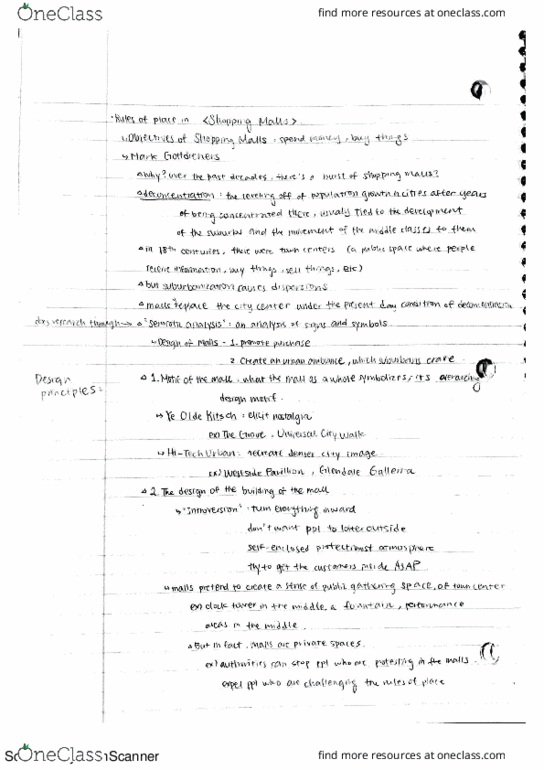 OneClass
find more resources at oneclass.com
Rules of place in <Shopping Malls>
Objectives of Shopping Malls · spend money, buy things
Mark Gottdeiners
why? over the past decades, there's a burst of shopping malls?
deconcentration: the leveling off of population growth in cities after years
of being concentrated there, usually tied to the development
of the suburbs and the movement of the middle classes to them
in 18th centuries, there were town centers (a public space where people
receive information, buy things, sell things, etc)
but suburbanization causes dispersions
malls replace the city center under the present day condition of deconcentration
research through → "semiotic analysis": an analysis of signs and symbols
Design of Malls - 1. promote purchase
2. Create an urban ambiance, which suburbans crave
Design
principles:
1. Motif of the mall: what the mall as a whole symbolizes, its overarching
design motif.
→ Ye Olde Kitsch: elicit nostalgia
ex) The Grove, Universal City Walk
→ Hi-Tech Urban: recreate denser city image
ex) Westside Pavillion, Glendale Galleria
2. The design of the building of the mall
"Introversion": turn everything inward
don't want ppl to loiter outside
self-enclosed protectionist atmosphere
try to get the customers inside ASAP
malls pretend to create a sense of public gathering space, of town center
ex) clock tower in the middle, a fountain, performance
areas in the middle.
But in fact, malls are private spaces.
ex) authorities can stop ppl who are protesting in the malls.
expel ppl who are challenging the rules of place
OneClass
Scanner
find more resources at oneclass.com